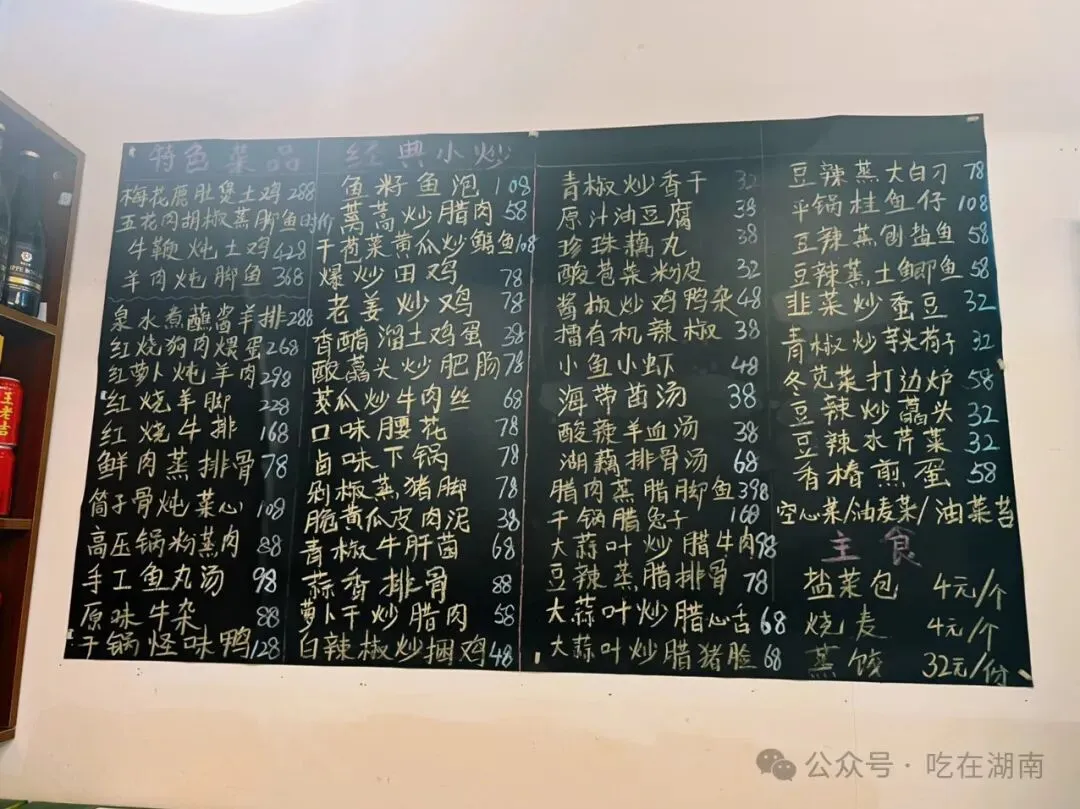 特色菜品
梅花鹿肚煲土鸡288
五花肉胡椒蒸脚鱼时价
牛鞭炖土鸡428
羊肉炖脚鱼368
泉水煮蘸酱羊排288
红烧狗肉煨蛋268
红萝卜炖羊肉298
红烧羊脚 228
红烧牛排 168
鲜肉蒸排骨 78
筒子骨炖菜心 108
高压锅粉蒸肉 88
手工鱼丸汤 98
原味牛杂 88
干锅怪味鸭128
经典小炒
鱼籽鱼泡 108
藜蒿炒腊肉 58
干苞菜黄瓜炒鳝鱼108
爆炒田鸡 78
老姜炒鸡 78
香醋溜土鸡蛋 38
酸藠头炒肥肠78
茭瓜炒牛肉丝 68
口味腰花 78
卤味下锅 78
剁椒蒸猪脚 78
脆黄瓜皮肉泥 38
青椒牛肝菌 68
蒜香排骨 88
萝卜干炒腊肉 58
白辣椒炒捆鸡48
青椒炒香干 32
原汁油豆腐 38
珍珠藕丸 38
酸苞菜粉皮 32
酱椒炒鸡鸭杂48
擂有机辣椒 38
小鱼小虾 48
海带菌汤 38
酸辣羊血汤 38
湖藕排骨汤 68
腊肉蒸腊脚鱼398
干锅腊兔子 168
大蒜叶炒腊牛肉98
豆辣蒸腊排骨 78
大蒜叶炒腊心舌68
大蒜叶炒腊猪脸68
豆辣蒸大白刁 78
平锅桂鱼仔 108
豆辣蒸刨盐鱼 58
豆辣蒸土鲫鱼 58
韭菜炒蚕豆 32
青椒炒芋头荷子 32
冬苋菜打边炉 58
豆辣炒藠头 32
豆辣水芹菜 32
香椿煎蛋 58
空心菜/油麦菜/油菜苔
主食
盐菜包 4元/个
烧麦 4元/个
蒸饺 32元/份
王老吉
公众号·吃在湖南